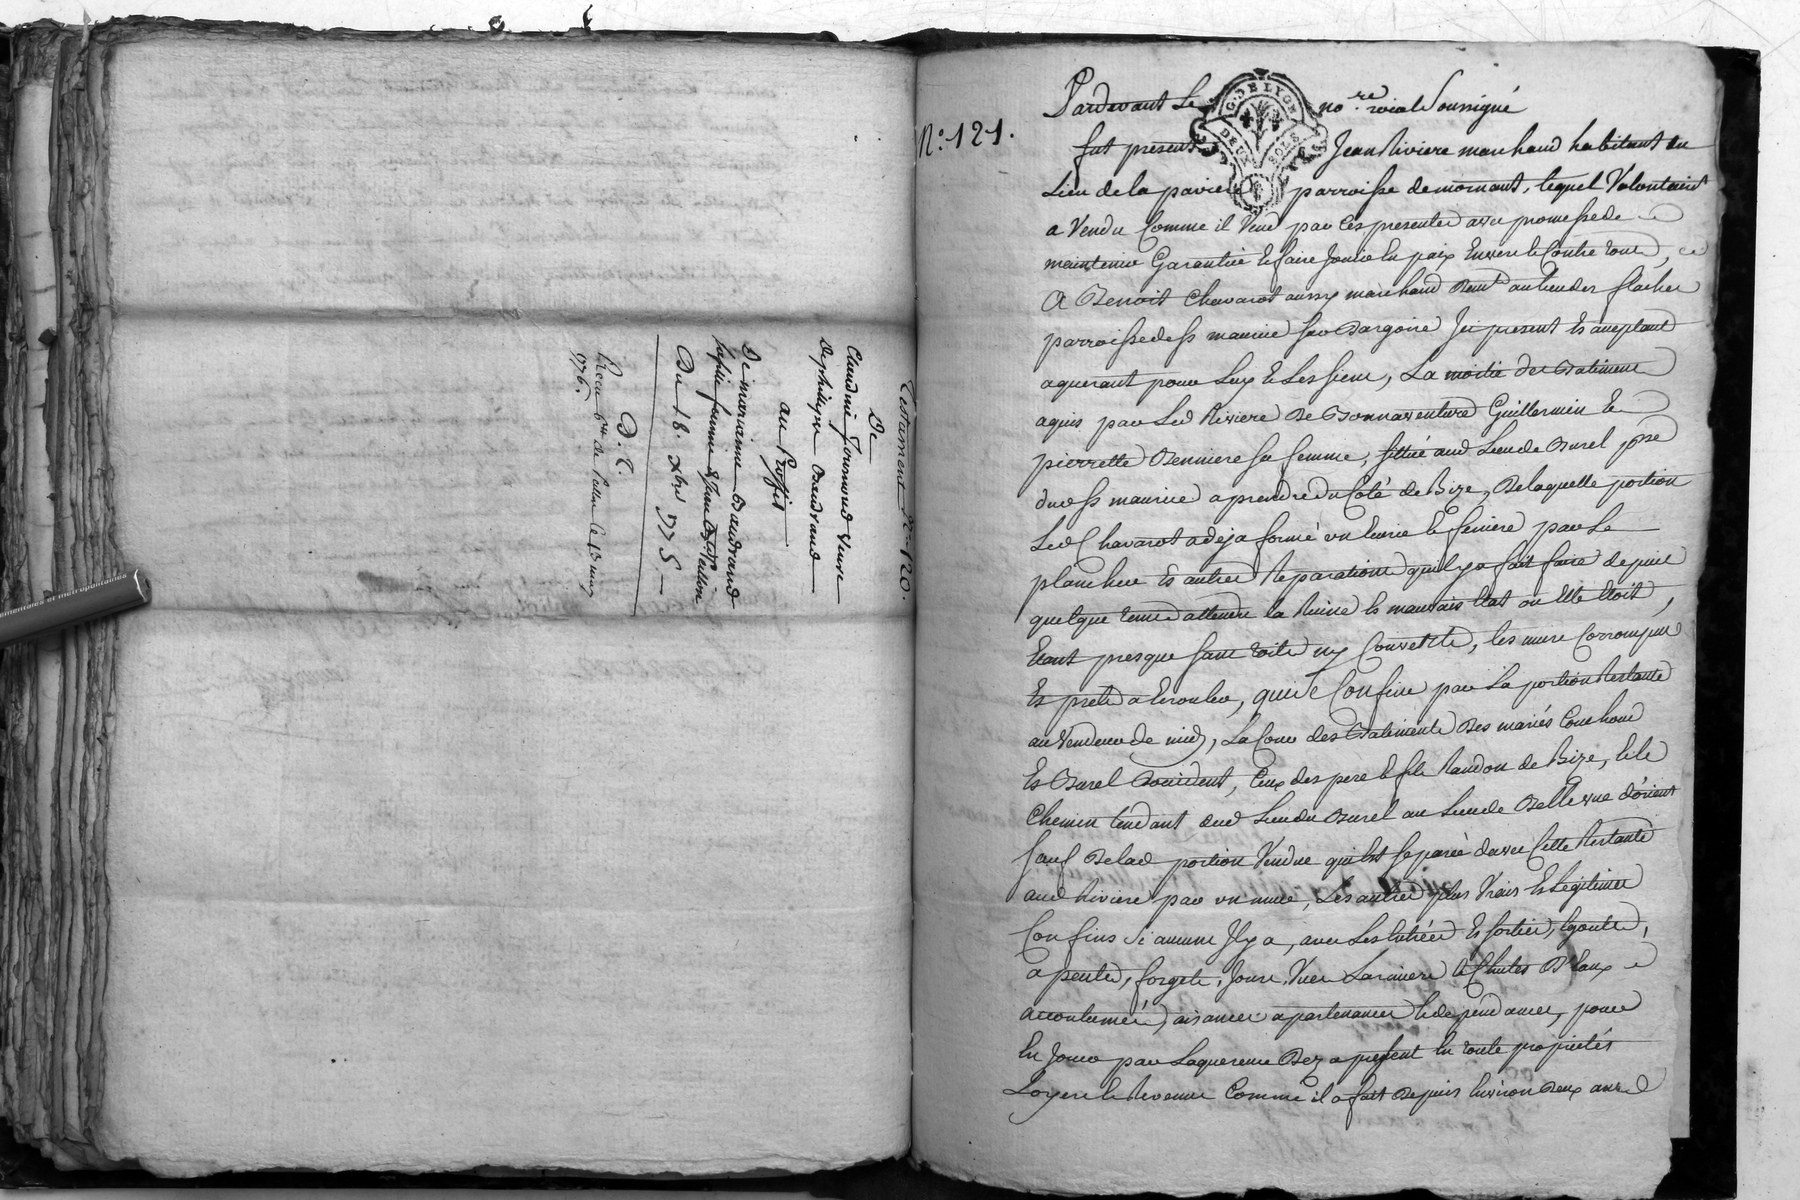 Testament N.o 120.
De
Claudine Journoud veuve
De philippe Baudrand
au Proffit
De marianne Baudrand
sa fille femme d'Jean
Du 18. xbre 1775.
D. T.
N.o 121.
G. DE LYON
DEUX SOLS
Pardevant Le no.re roial Soussigné
fut present Jean Riviere marchand habitant au
Lieu de la paviere parroisse de mornant, lequel Volontairt
a Vendu Comme il Vend par Ces presentes avec promesse de
maintenir Garantir & faire Jouir En paix Envers & Contre tous,
A Benoit Chavarot aussy marchand demt au lieu des flaches
parroisse de st maurice sur Dargoire Jci present Et aceptant
aquerant pour Luy & Les siens, La moitié des Batiments
aquis par Led Riviere De Bonnaventure Guillermin &
pierrette Benniere sa femme, scitué aud Lieu de Burel psse
dud st maurice a prendre du Coté de Bize, De laquelle portion
Led Chavarot a deja formé un Cuvier & feniere par Le
plancher Et autres Reparations qu'il y a fait faire depuis
quelque tems attendu la Ruine Et mauvais Etat ou Elle Etoit,
Etant presque sans toits ny Couverts, les murs Corrompus
Et prets a Ecrouler, qui se Confine par La portion Restante
au Vendeur de midy, La Cour des Batiments Des mariés Couchoud
Et Burel Doccident, Ceux des pere & fils Randon de Bize, & le
Chemin tendant dud Lieu du Burel au Lieu de Bellevue d'orient
sauf De lad portion Vendue qui Est separée davec Celle Restante
aud Riviere par un mur, Les autres plus Vrais Et Legitimes
Confins Si aucuns Jl y a, avec Les Entrées Et sorties, Egouts,
apents, forgets, Jours, Vues Larmiers & Chutes D'Eaux
accoutumés, aisances apartenances & dependances, pour
En Jouir par Laquereur Dez a present En toute propriétés
Loyers & Revenus Comme il a fait Depuis Environ Deux ans